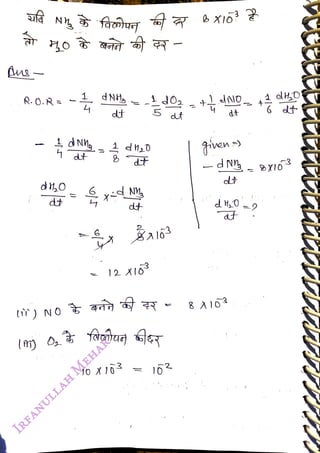 यदि NH₃ के विलोपन की दर 8 X10⁻³ है
तो H₂O के बनने की दर -
Ans -
R.O.R = - 1/4 dNH₃/dt = - 1/5 dO₂/dt = + 1/4 dNO/dt = + 1/6 dH₂O/dt
- 1/4 dNH₃/dt = 1/8 dH₂O/dt
given ⇒
- dNH₃/dt = 8X10⁻³
dH₂O/dt = ?
dH₂O/dt = 6/4 X - dNH₃/dt
= 6/4 X 8 X10⁻³
2
= 12 X10⁻³
(ii) NO के बनने की दर - 8 X10⁻³
(iii) O₂ के विलोपन की दर
10 X 10⁻³ = 10⁻²
IRFANULLAH MEHAR